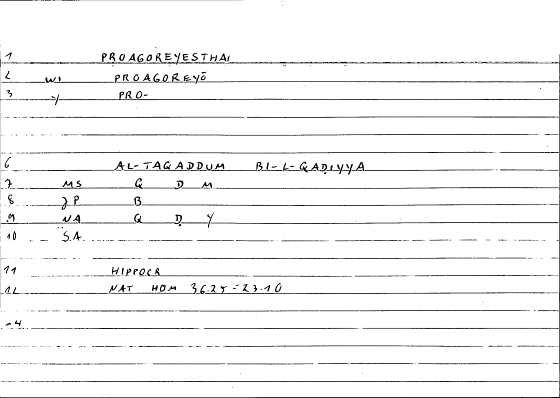 1 PROAGOREYESTHAI
2 WI PROAGOREYŌ
3 Y PRO-
6 AL-TAQADDUM BI-L-QAḌIYYA
7 MS Q D M
8 JP B
9 NA Q Ḍ Y
10 S.A.
11 HIPPOCR
12 NAT HOM 36.25 = 23.10
-4